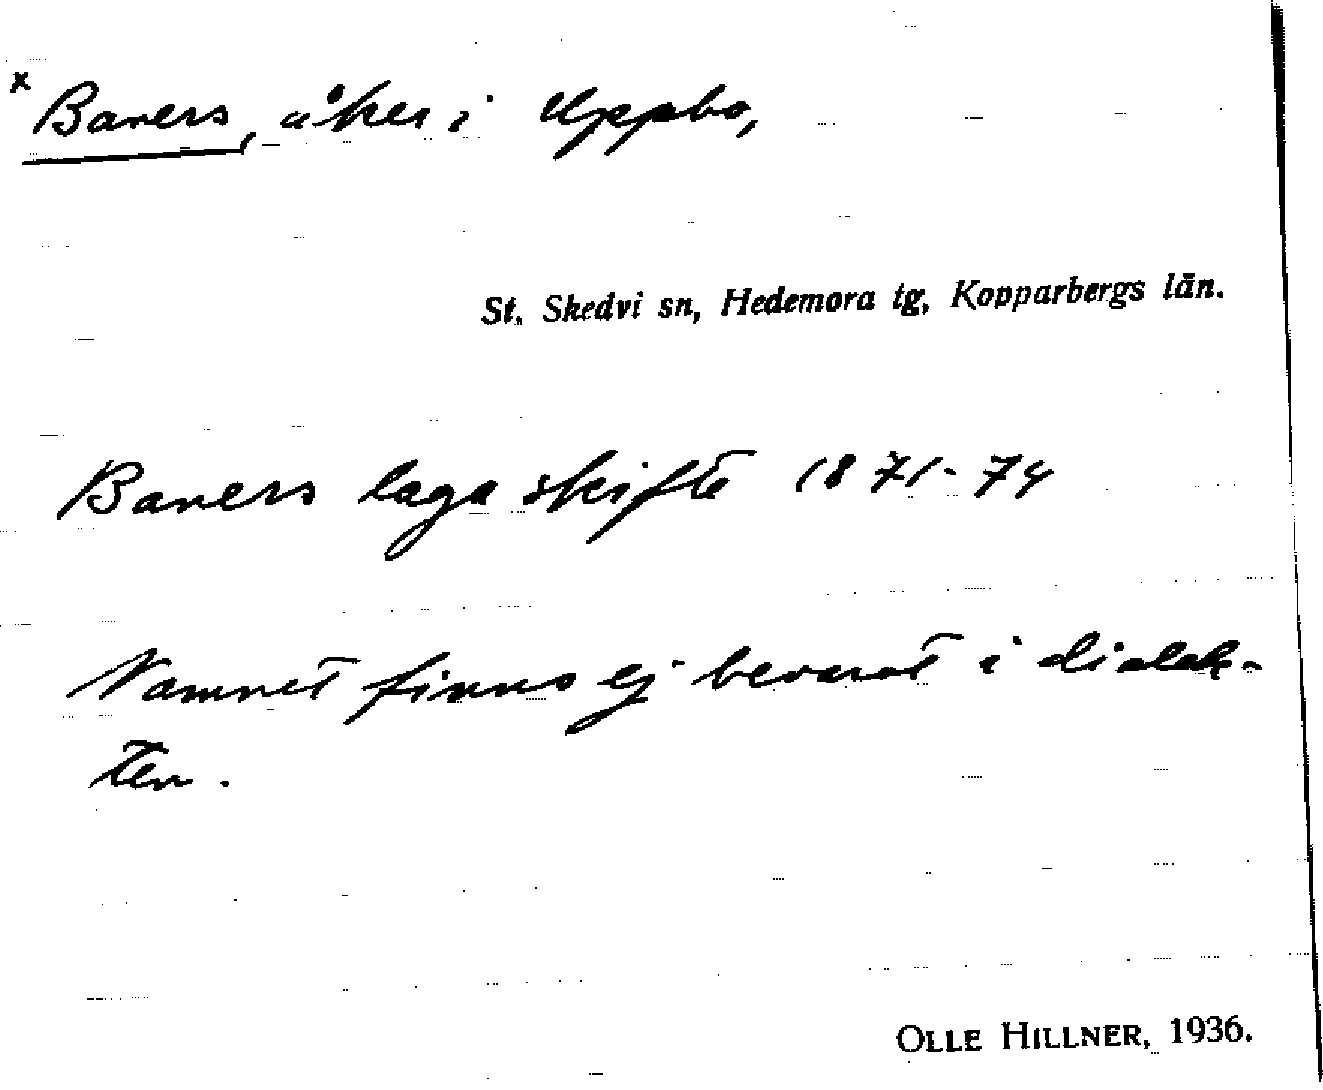 x Baners, åker i Uppbo,
St. Skedvi sn, Hedemora tg, Kopparbergs län.
Baners laga skifte 1871-74
Namnet finns ej bevarat i dialek-
ten.
OLLE HILLNER, 1936.